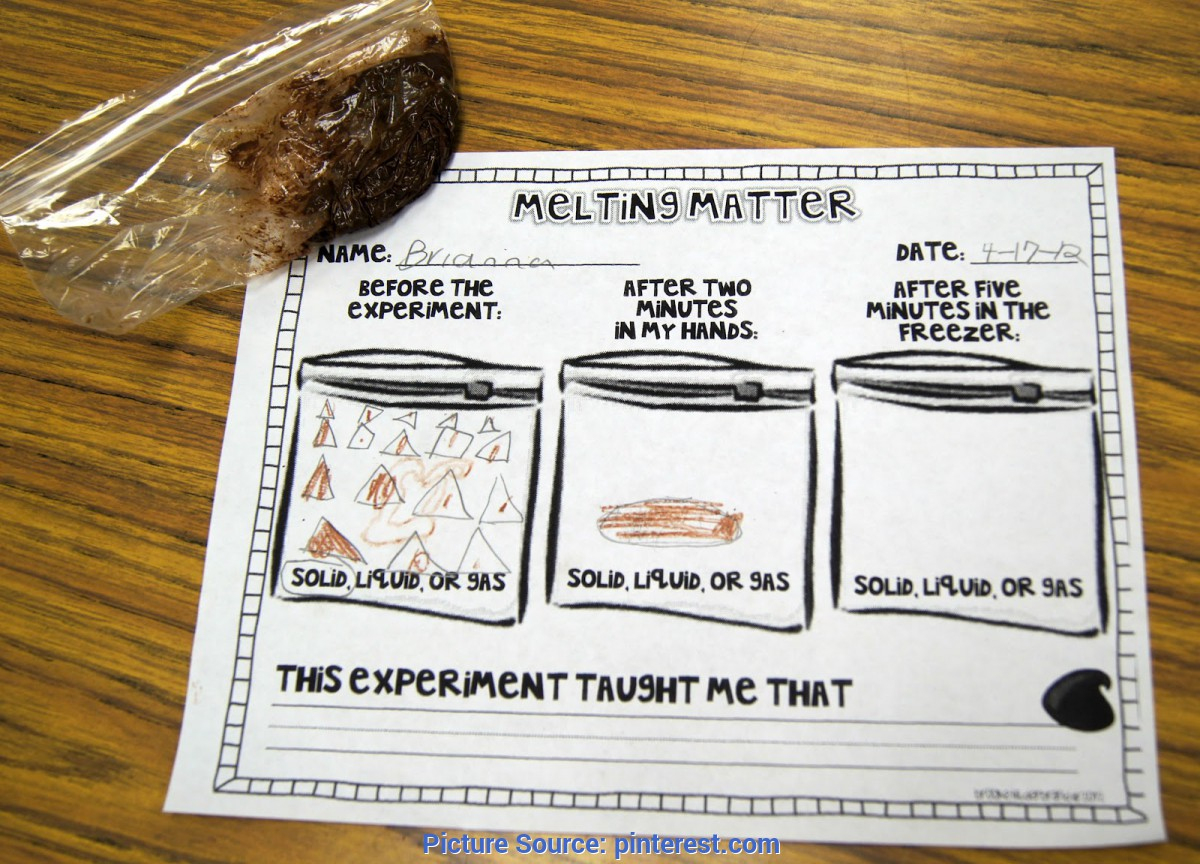 MELTING MATTER
NAME: Brianna DATE: 4-17-12
BEFORE THE
EXPERIMENT:
AFTER TWO
MINUTES
IN MY HANDS:
AFTER FIVE
MINUTES IN THE
FREEZER:
SOLID, LIQUID, OR GAS
SOLID, LIQUID, OR GAS
SOLID, LIQUID, OR GAS
THIS EXPERIMENT TAUGHT ME THAT
Picture Source: pinterest.com